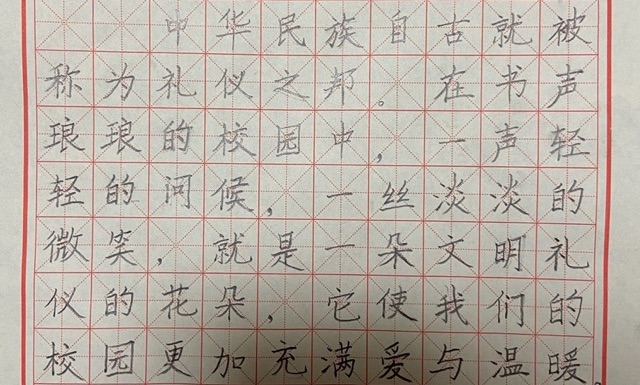 中华民族自古就被
称为礼仪之邦。在书声
琅琅的校园中，一声轻
轻的问候，一丝淡淡的
微笑，就是一朵文明礼
仪的花朵，它使我们的
校园更加充满爱与温暖.